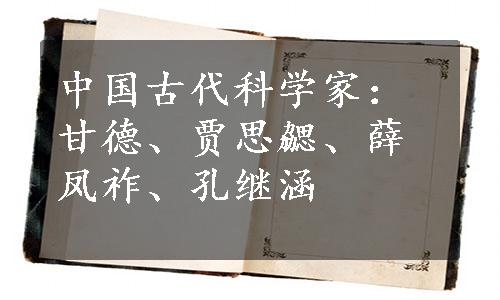 中国古代科学家：
甘德、贾思勰、薛
凤祚、孔继涵